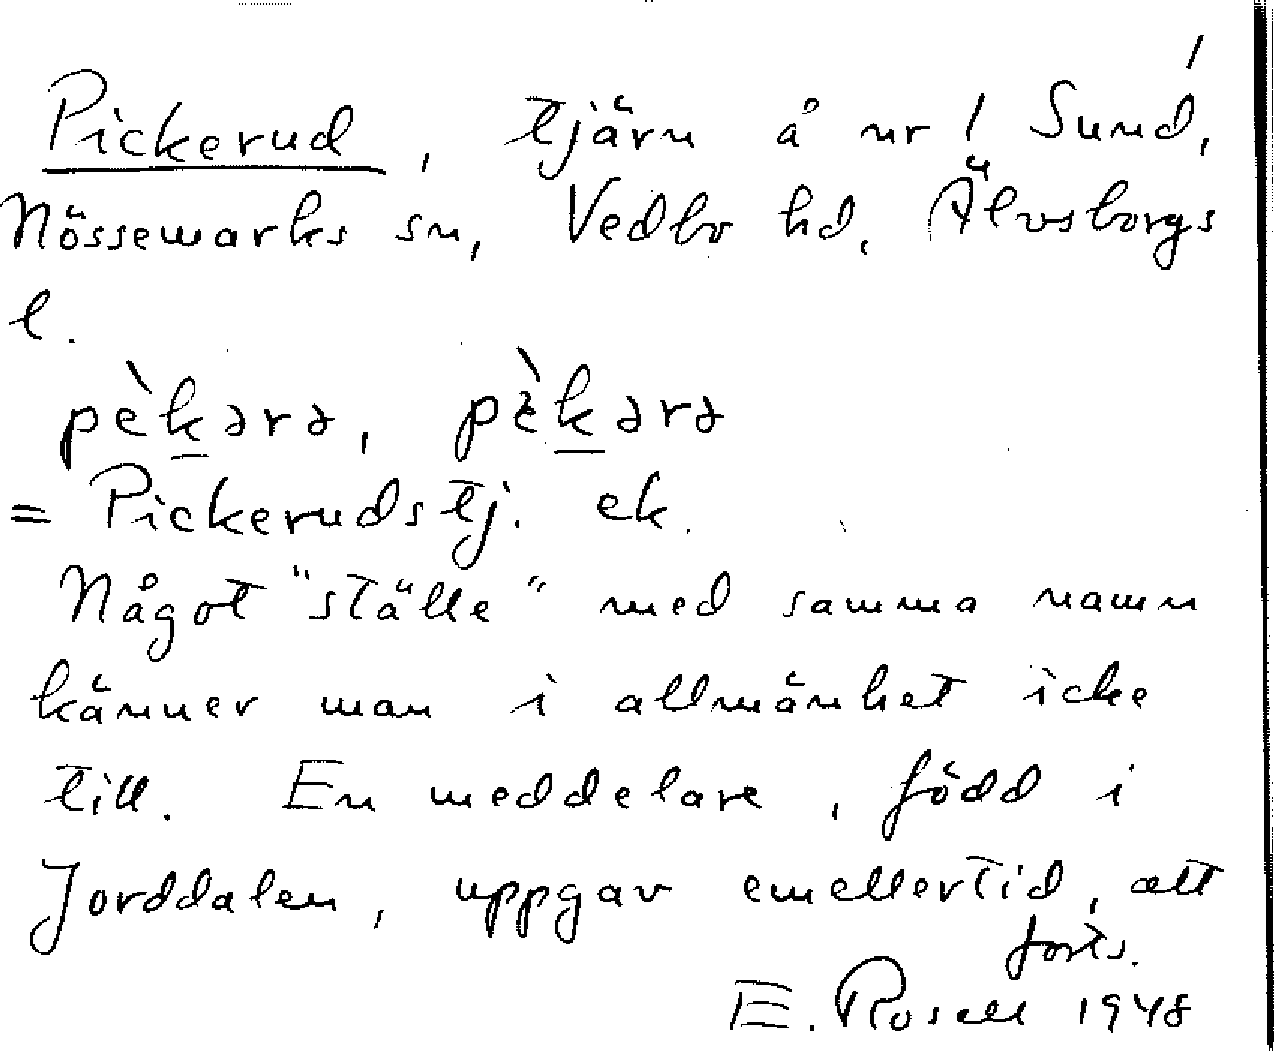 /
Pickerud, tjärn å nr 1 Sund,
Nössewarks sn, Vedbo hd, Älvsborgs
l.
pèkərə, pèkərə
= Pickerudstj. ek.
Något "ställe" med samma namn
känner man i allmänhet icke
till. En meddelare, född i
Jorddalen, uppgav emellertid, att
forts.
E. Rosell 1948